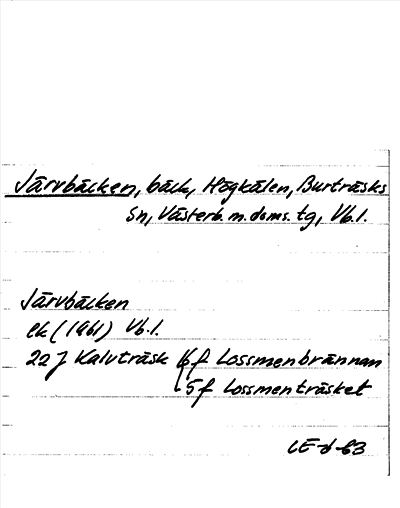 Järvbäcken, bäck, Högkålen, Burträsks
sn, Västerb. m. doms. tg, Vb. l.
Järvbäcken
ek (1961) Vb. l.
22 J Kalvträsk 6 f Lossmenbrännan
5 f Lossmenträsket